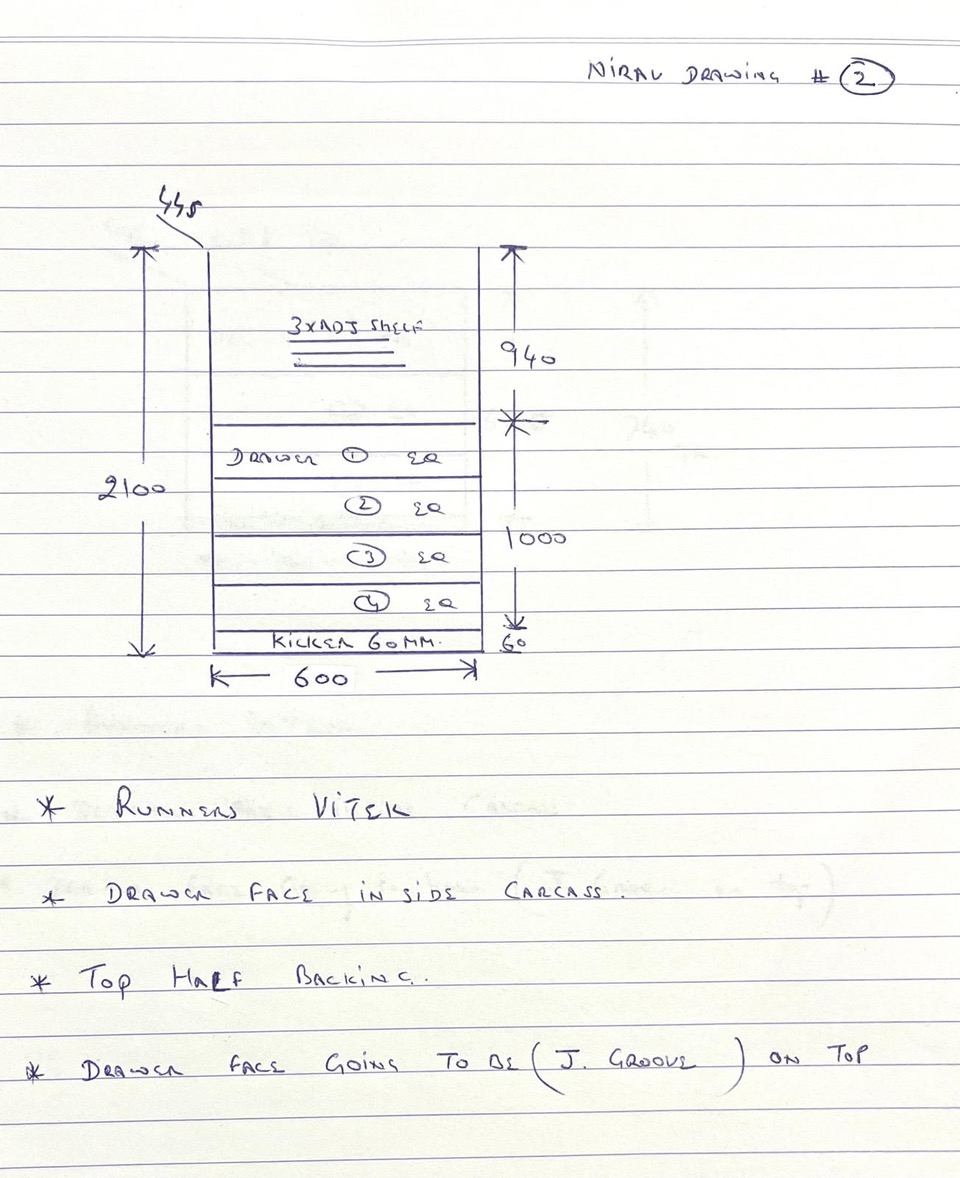 NIRAV DRAWING # 2
445
3xADJ SHELF
940
DRAWER 1 EQ
2100
2 EQ
1000
3 EQ
4 EQ
KICKER 60MM.
60
600
* RUNNERS VITEK
* DRAWER FACE INSIDE CARCASS.
* TOP HALF BACKING.
* DRAWER FACE GOING TO BE (J. GROOVE) ON TOP